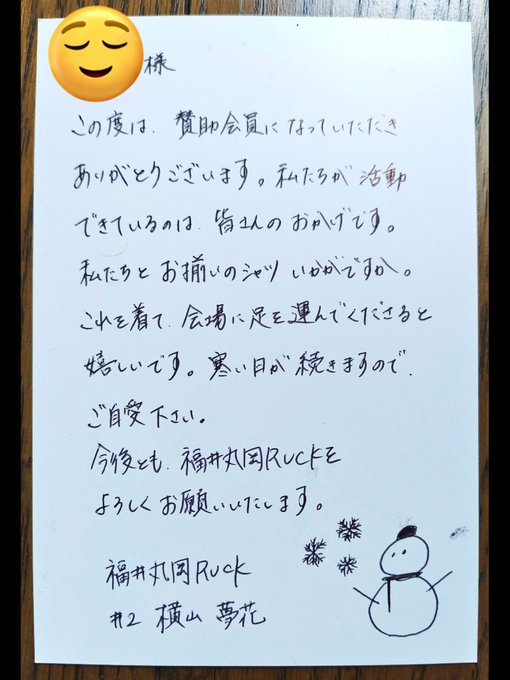 様
この度は、賛助会員になっていただき
ありがとうございます。私たちが活動
できているのは、皆さんのおかげです。
私たちとお揃いのシャツいかがですか。
これを着て、会場に足を運んでくださると
嬉しいです。寒い日が続きますので、
ご自愛下さい。
今後とも、福井丸岡RUCKを
よろしくお願いいたします。
福井丸岡RUCK
#2 横山 夢花